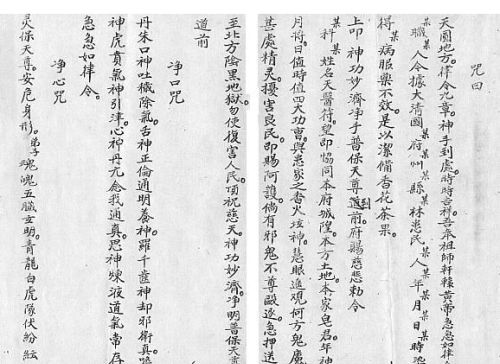 咒曰
天圓地方。律令九章。神手到處。時時吉祥。吾奉祖師軒轅黃帝急急如律
某職某人今據大清國某府某州某縣某林患民某人某年某月某日某時
得某病服藥不效。是以潔備香花茶果。
上叩 神功妙濟淨手普保天尊道前。到府賜慈悲勅令
某科某姓名天醫符望即協同本府城隍。本方土地。本家皂君。年神
月將。日值時值四大功曹。與患家之香火垃神。慧眼遙觀何方鬼處
甚處精灵。擾害良民。即賜阿護。倘有邪鬼不尊。毆逐急押送
至北方陰黑地獄。勿使復害人民。項祝慈天神功妙濟。淨明普保天
道前
净口咒
丹朱口神吐穢除氣。舌神正倫通明養神。羅千齒神却邪衛真。
神虎賁氣神引津。心神丹元念我通真。思神煉液道氣常存
急急如律令。
净心咒
灵保天尊。安危身形。弟子魂魄五臟玄明。青龍白虎隊伏紛紜